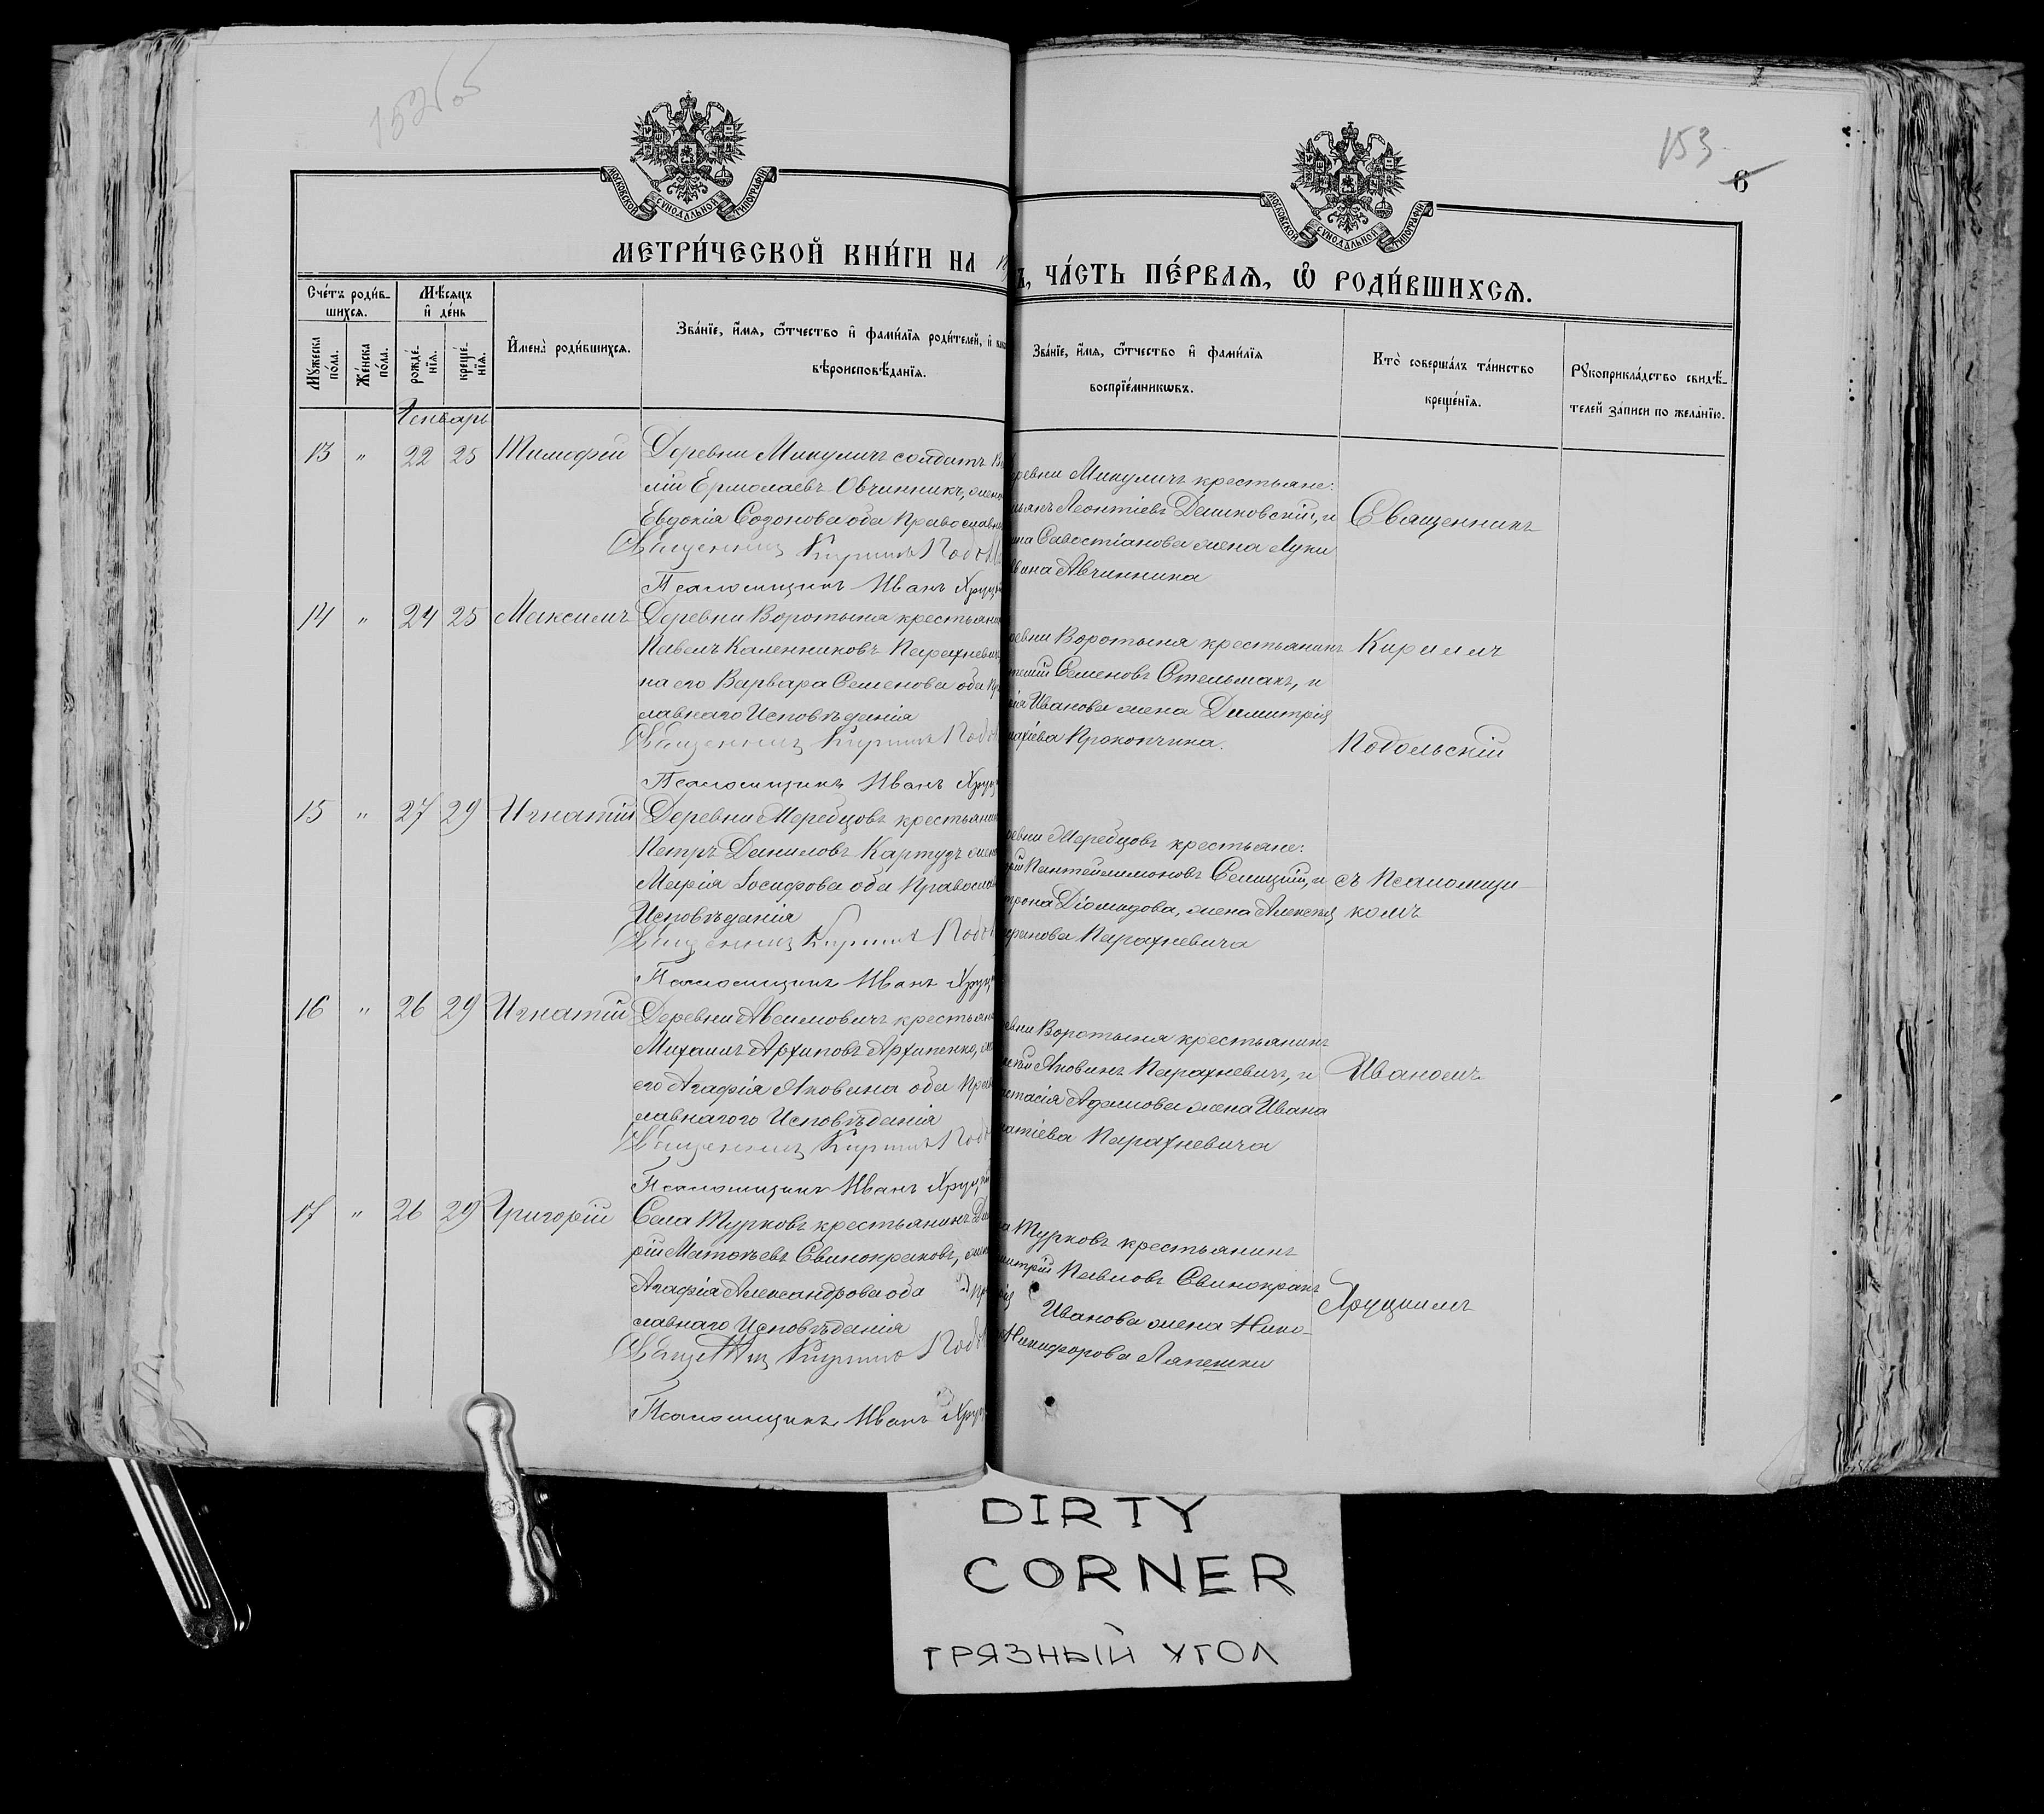 153
6
МОСКОВСКОЙ СУНОДАЛЬНОЙ ТИПОГРАФІИ
МОСКОВСКОЙ СУНОДАЛЬНОЙ ТИПОГРАФІИ
МЕТРИ́ЧЕСКОЙ КНИ́ГИ НА
Ъ, ЧА́СТЬ ПЕ́РВАЯ, Ѿ РОДИ́ВШИХСЯ.
Сче́тъ роди́вшихся.
Мꙋ́жеска по́ла.
Же́нска по́ла.
Мѣ́сяцъ и҆ де́нь
рожде́нїя.
креще́нїя.
И҆мена̀ роди́вшихся.
Зва́нїе, и҆́мя, ѻ҆́тчество и҆ фами́лїя роди́телей, и҆
вѣроисповѣ́данїя.
Зва́нїе, и҆́мя, ѻ҆́тчество и҆ фами́лїя
воспрїе́мниковъ.
Кто̀ соверша́лъ та́инство
креще́нїя.
Рꙋкоприкла́дство свидѣ́-
телей за́писи по жела́нїю.
Генварь
13 " 22 25 Тимофей Деревни Микуличъ солдатъ Ва
лій Ермолаевъ Овчинникъ, жена
Евдокія Созонова оба Православн
Священникъ Кириллъ Подол
Псаломщикъ Иванъ Хруц
ревни Микуличъ крестьяне:
Леонтіевъ Дашковскій, и
Савостіанова жена Луки
Авчинника
Священникъ
14 " 24 25 Максимъ Деревни Воротыня крестьянин
Павелъ Каленниковъ Парахневич
на его Варвара Семенова оба Пр
лавнаго Исповѣданія
Священникъ Кириллъ Подол
Псаломщикъ Иванъ Хруц
ревни Воротыня крестьянинъ
Семеновъ Стельмахъ, и
Иванова жена Димитрія
Прокопчика.
Кириллъ
Подольскій
15 " 27 29 Игнатій Деревни Жеребцовъ крестьянин
Петръ Даниловъ Картузъ жена
Марія Іосифова оба Православ
Исповѣданія
Священникъ Кириллъ Подол
Псаломщикъ Иванъ Хруц
ревни Жеребцовъ крестьяне:
Пантелеимоновъ Селицкій, и
Діомидова, жена Алексѣя
Парахневича
съ Псаломщи-
комъ
16 " 26 29 Игнатій Деревни Авсимовичъ крестьян
Михаилъ Архиповъ Архипенко, же
его Агафія Яковлева оба Прав
лавнагого Исповѣданія
Священникъ Кириллъ Подол
Псаломщикъ Иванъ Хруц
ревни Воротыня крестьянинъ
Парахневичъ, и
стасія Адамова жена Ивана
натіева Парахневича
Иваномъ
17 " 26 29 Григорій Села Турковъ крестьянинъ Дми
рій Матвѣевъ Свинокраковъ, жен
Агафія Александрова оба Пр
лавнаго Исповѣданія
Священникъ Кириллъ Подол
Псаломщикъ Иванъ Хруц
ла Турковъ крестьянинъ
митрій Павловъ Свинокракъ
Иванова жена Нико-
Никифорова Ляпешки
Хруцкимъ
DIRTY
CORNER
ГРЯЗНЫЙ УГОЛ